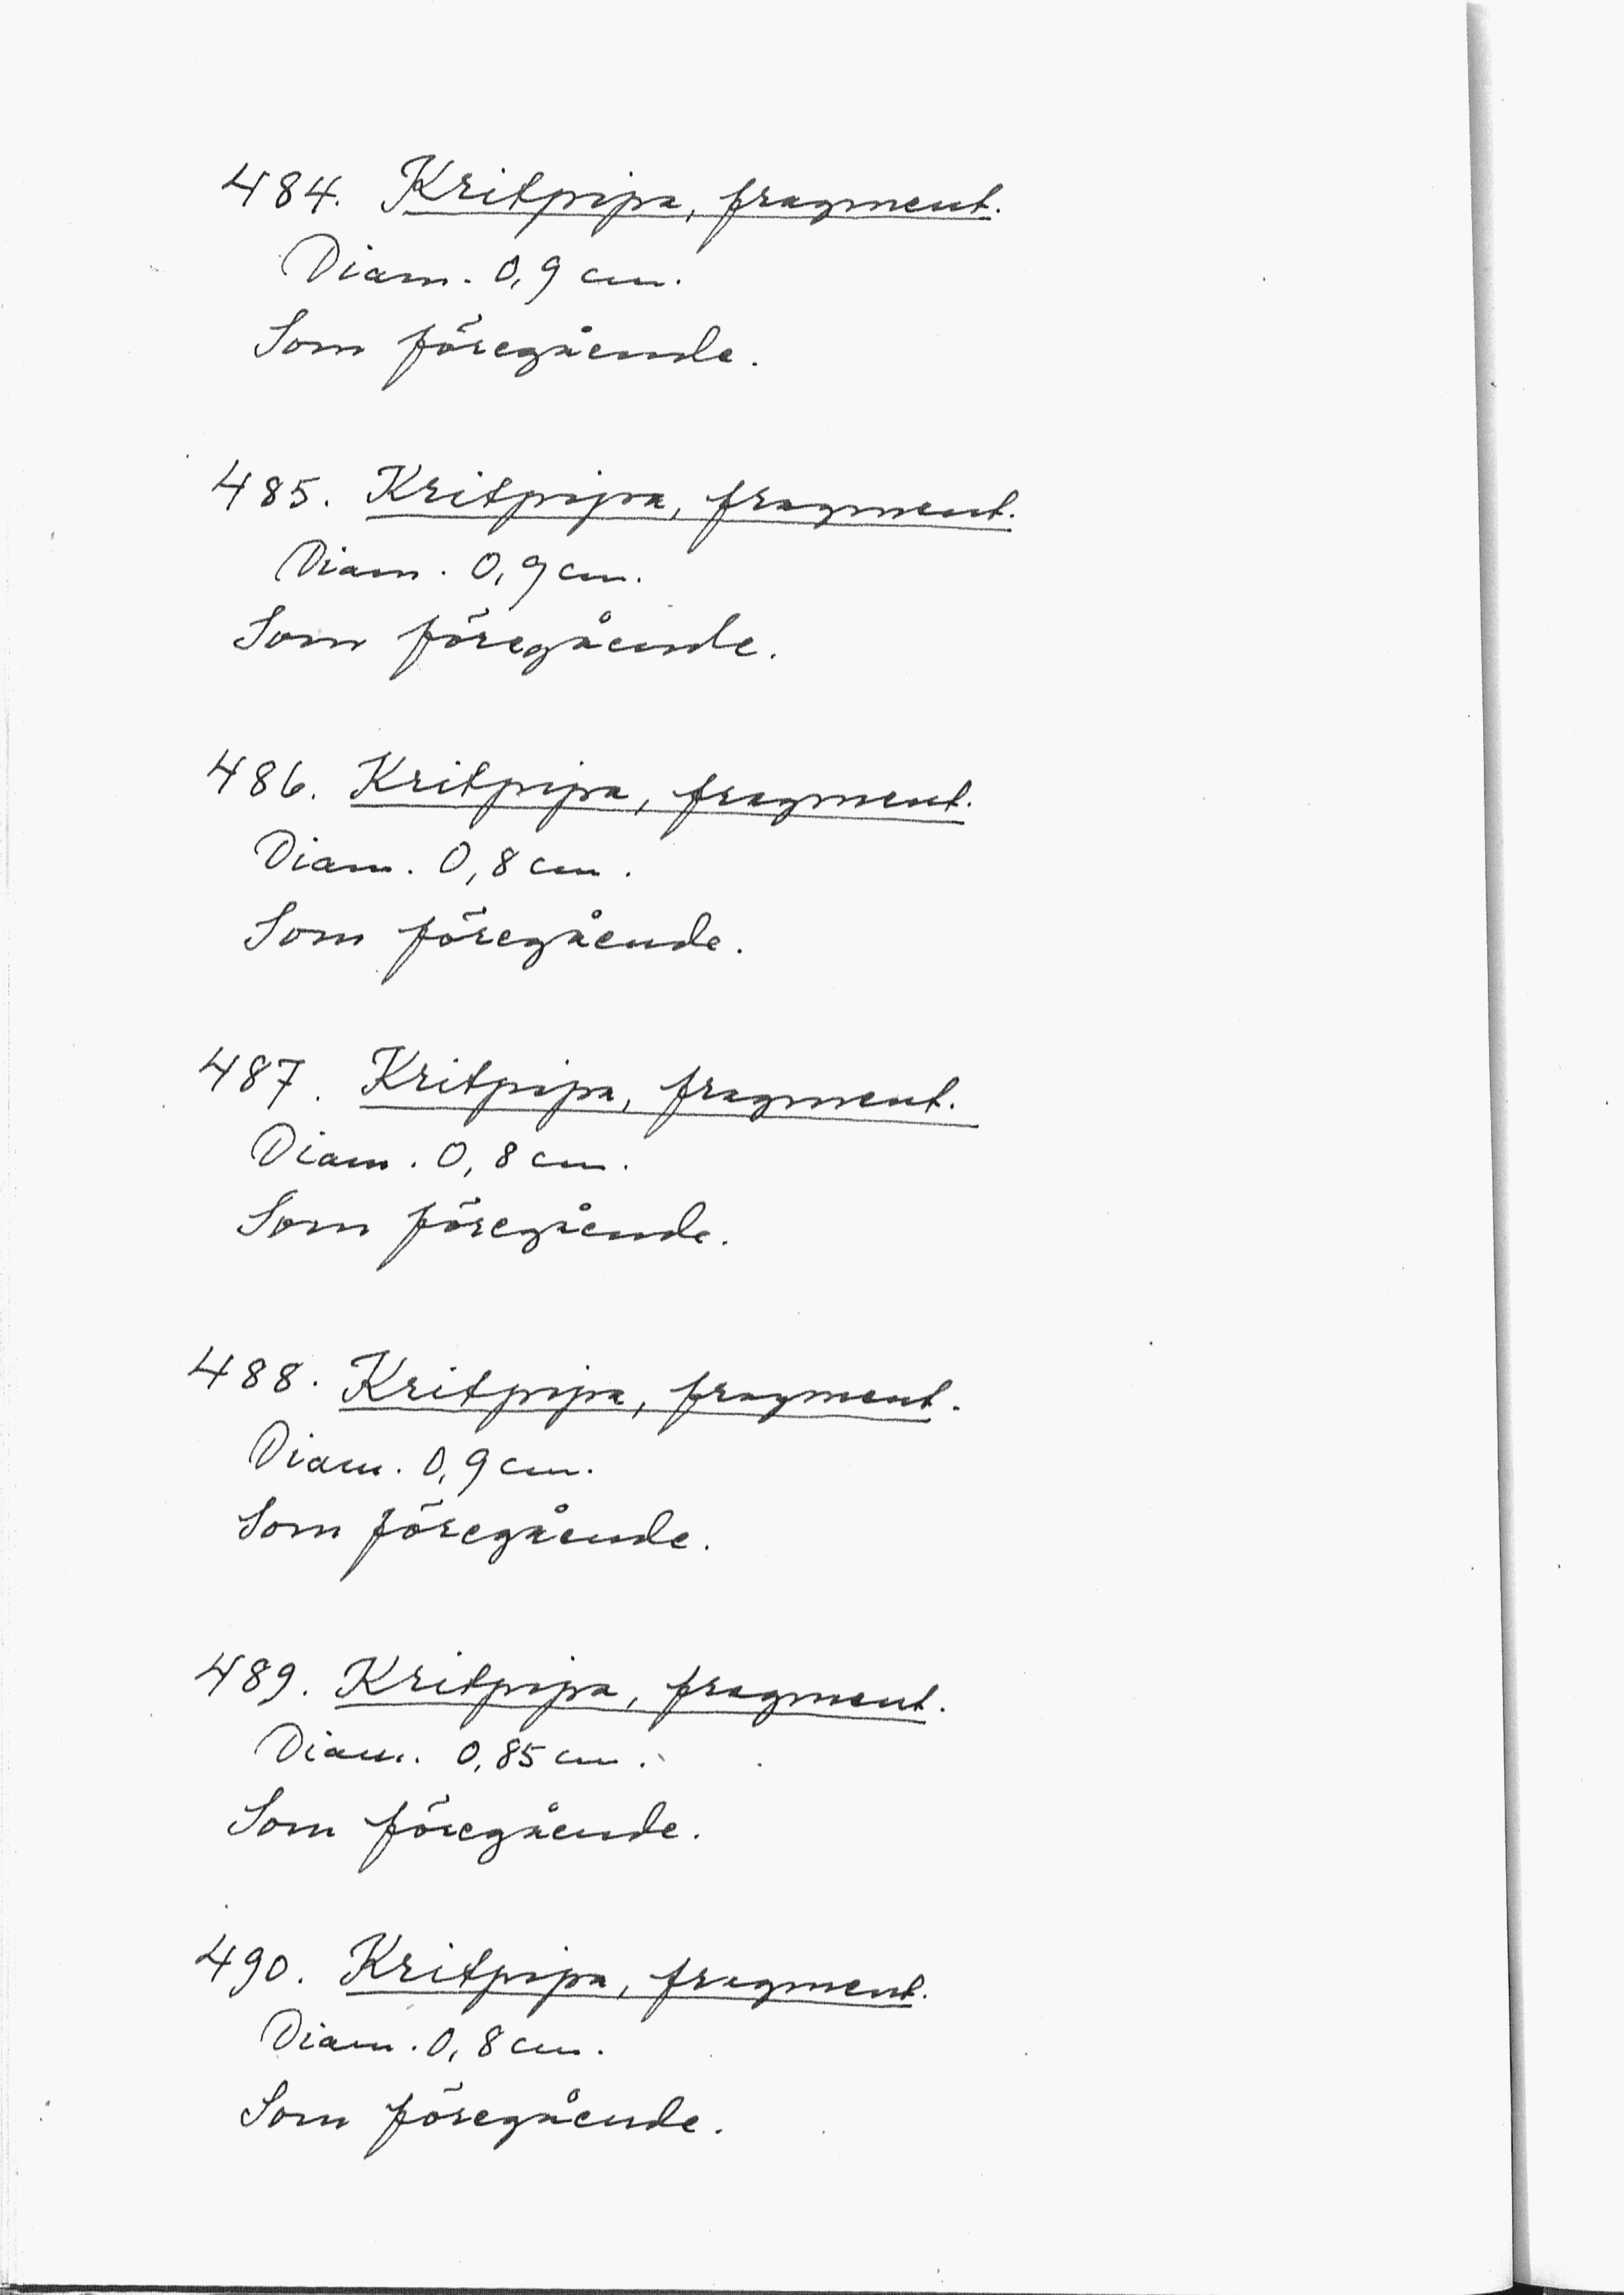 484. Kritpipa, fragment.
Diam. 0,9 cm.
Som föregående.
485. Kritpipa, fragment.
Diam. 0,9 cm.
Som föregående.
486. Kritpipa, fragment.
Diam. 0,8 cm.
Som föregående.
487. Kritpipa, fragment.
Diam. 0,8 cm.
Som föregående.
488. Kritpipa, fragment.
Diam. 0,9 cm.
Som föregående.
489. Kritpipa, fragment.
Diam. 0,85 cm.
Som föregående.
490. Kritpipa, fragment.
Diam. 0,8 cm.
Som föregående.